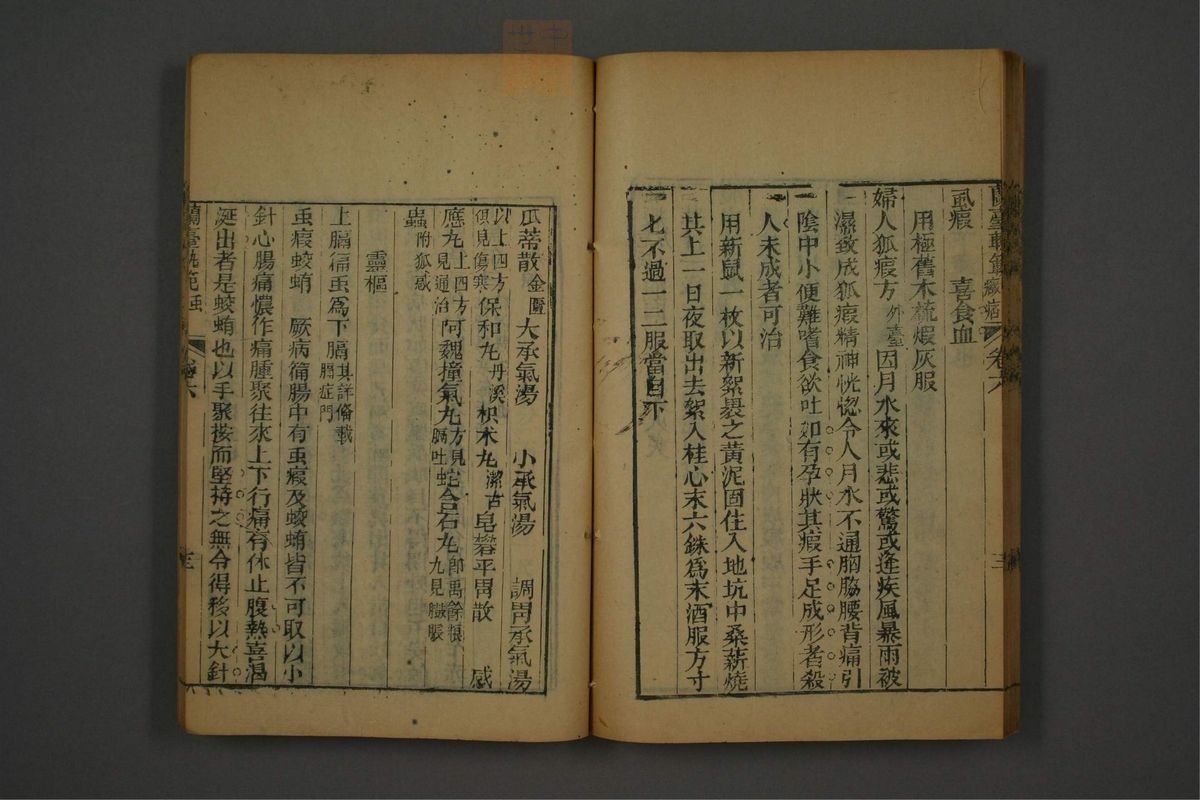 蝨瘕　喜食血
用極舊木梳煆灰服
婦人狐瘕方外臺因月水來或悲或驚或逢疾風暴雨被
濕致成狐瘕精神恍惚令人月水不通胸脇腰背痛引
陰中小便難嗜食欲吐如有孕狀其瘕手足成形者殺
人未成者可治
用新鼠一枚以新絮裹之黃泥固住入地坑中桑薪燒
其上一日夜取出去絮入桂心末六銖爲末酒服方寸
匕不過一二服當自下
蘭臺軌範　卷六　三
瓜蒂散金匱　大承氣湯　小承氣湯　調胃承氣湯
以上四方俱見傷寒　保和丸丹溪　枳朮丸潔古　皂礬平胃散　感
應丸上四方見通治　阿魏撞氣丸方見膈吐　蛇含石丸卽禹餘糧丸見臌脹
蟲附狐惑
靈樞
上膈篇虫爲下膈其詳備載膈症門
虫瘕蛟蛕　厥病篇腸中有虫瘕及蛟蛕皆不可取以小
針心腸痛憹作痛腫聚往來上下行痛有休止腹熱喜渴
涎出者是蛟蛕也以手聚按而堅持之無令得移以大針